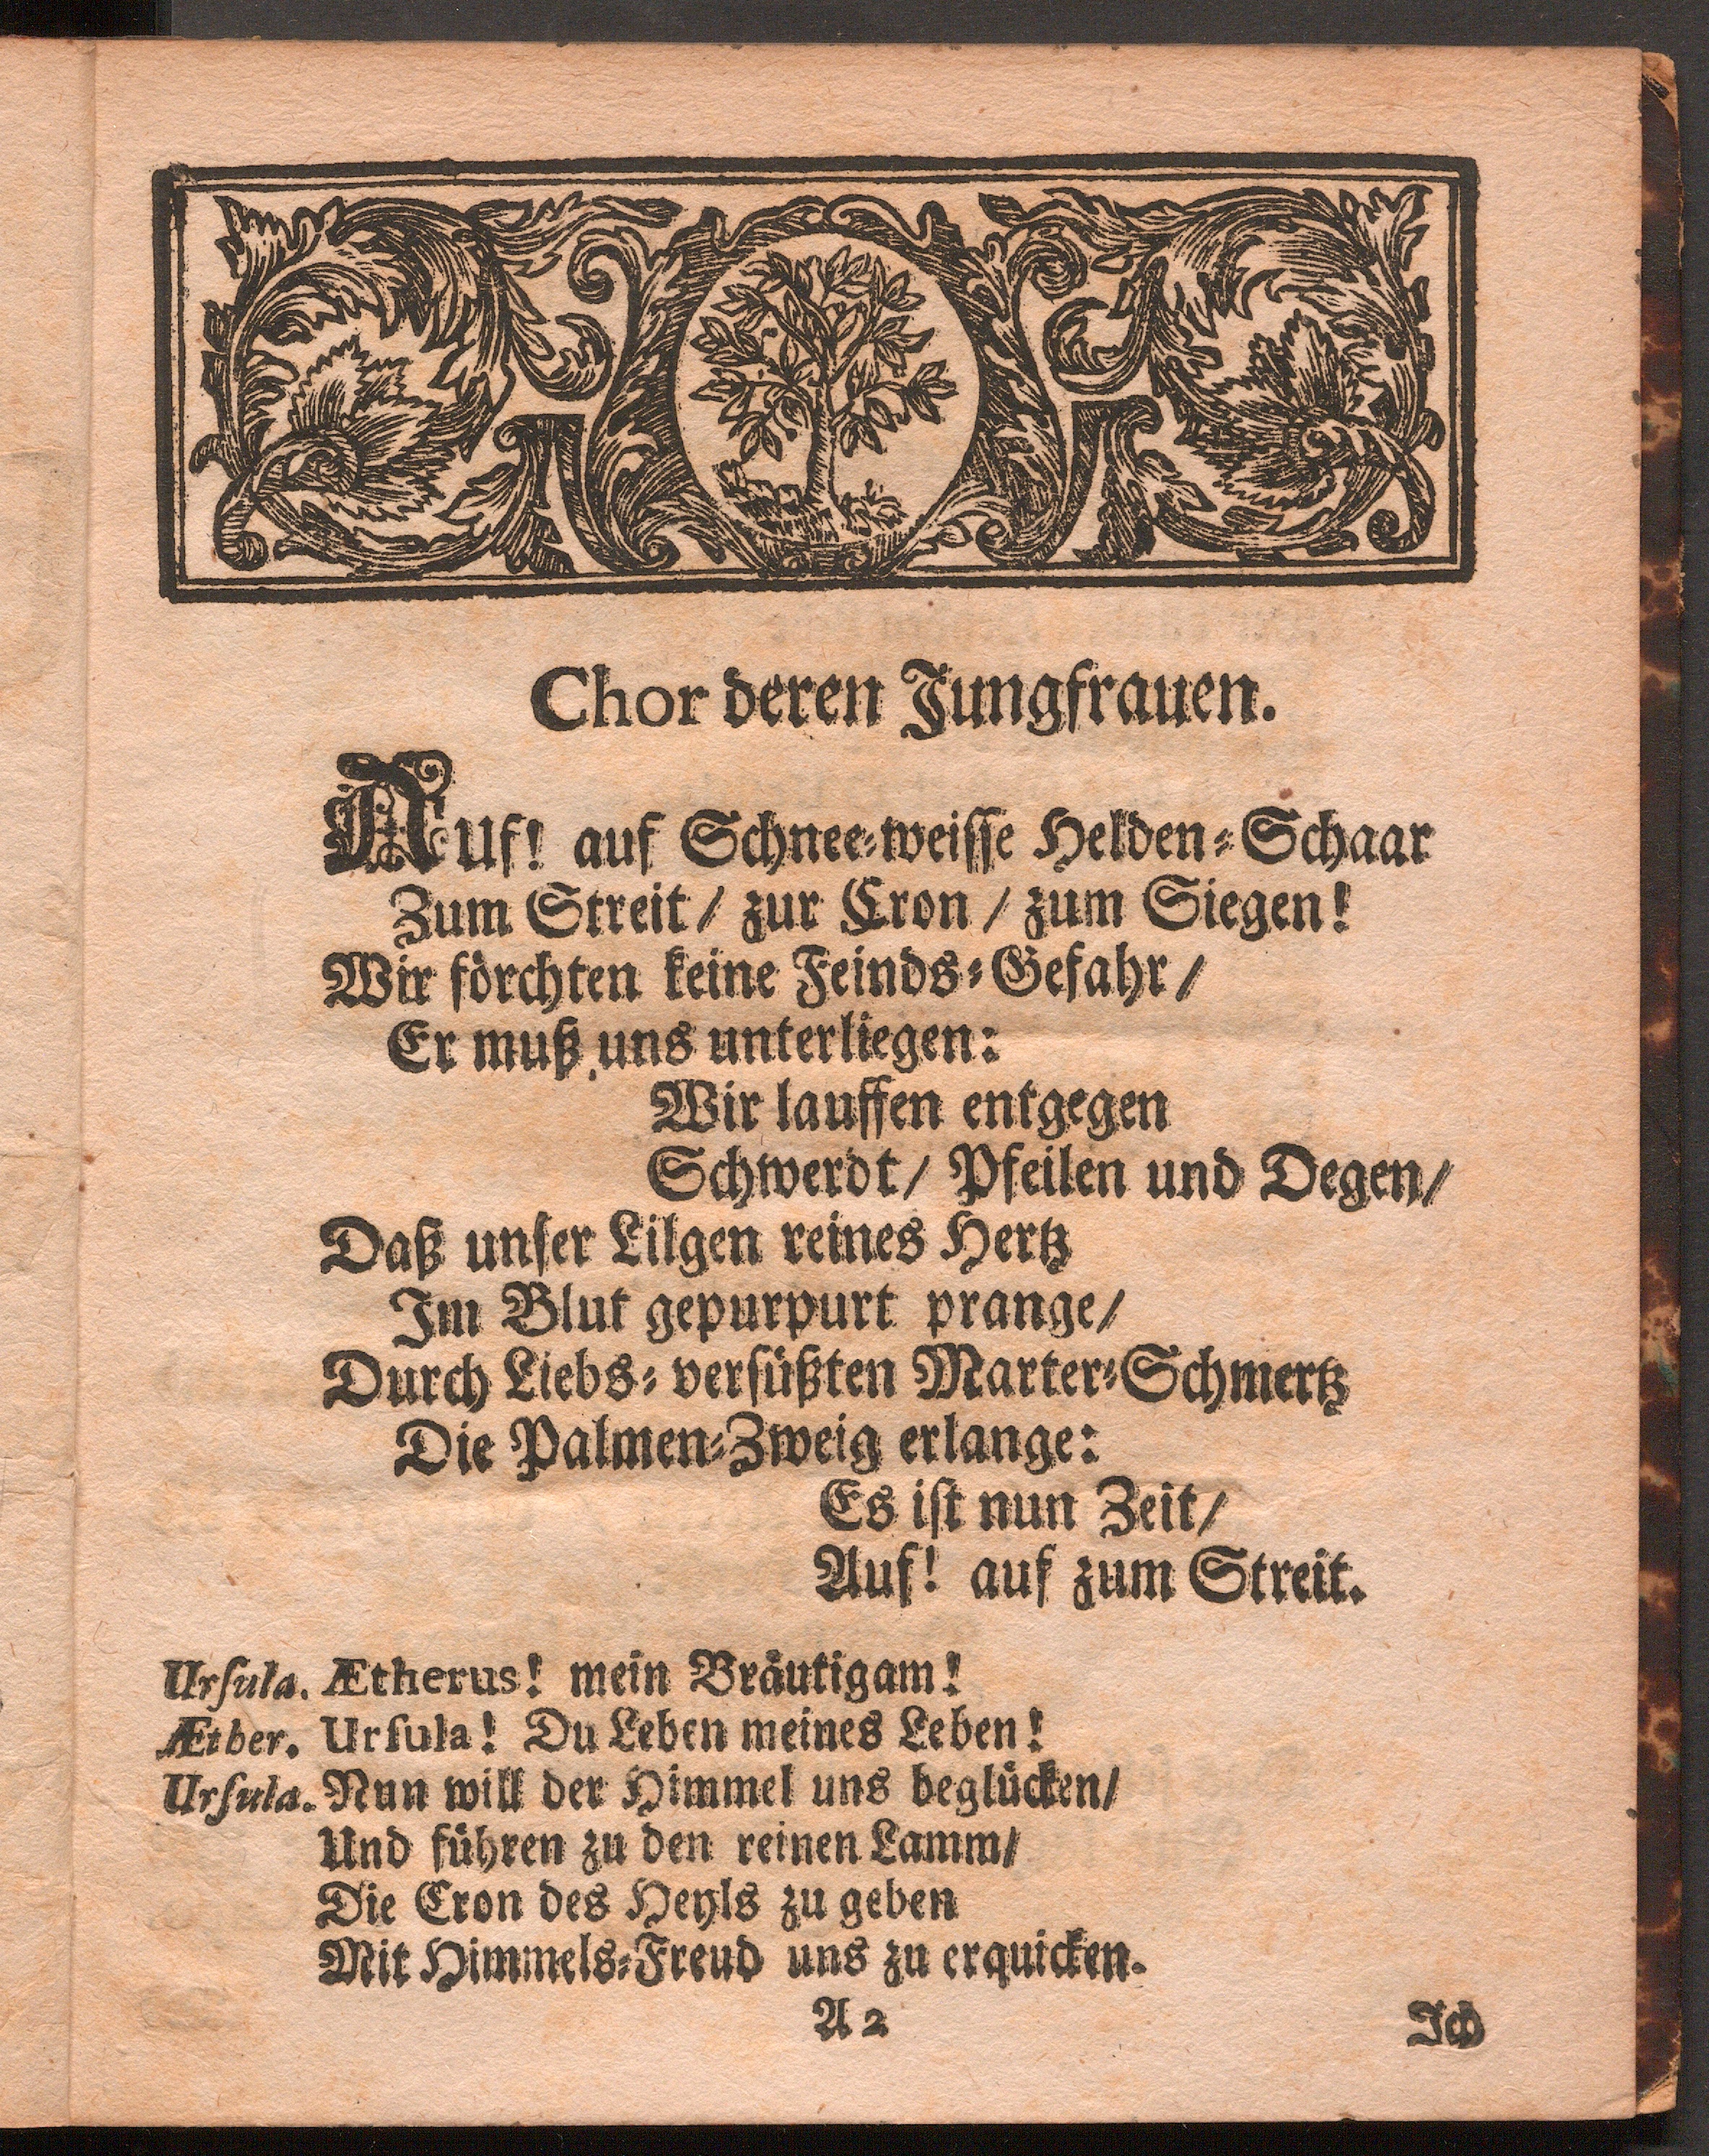 Chor deren Jungfrauen.
AUf! auf Schnee-weisse Helden-Schaar
Zum Streit / zur Cron / zum Siegen!
Wir förchten keine Feinds-Gefahr /
Er muß uns unterliegen:
Wir lauffen entgegen
Schwerdt / Pfeilen und Degen /
Daß unser Lilgen reines Hertz
Im Blut gepurpurt prange /
Durch Liebs-versüßten Marter-Schmertz
Die Palmen-Zweig erlange:
Es ist nun Zeit /
Auf! auf zum Streit.
Ursula. Ætherus! mein Bräutigam!
Æther. Ursula! Du Leben meines Leben!
Ursula. Nun will der Himmel uns beglücken /
Und führen zu den reinen Lamm /
Die Cron des Heyls zu geben
Mit Himmels-Freud uns zu erquicken.
A 2 Ich